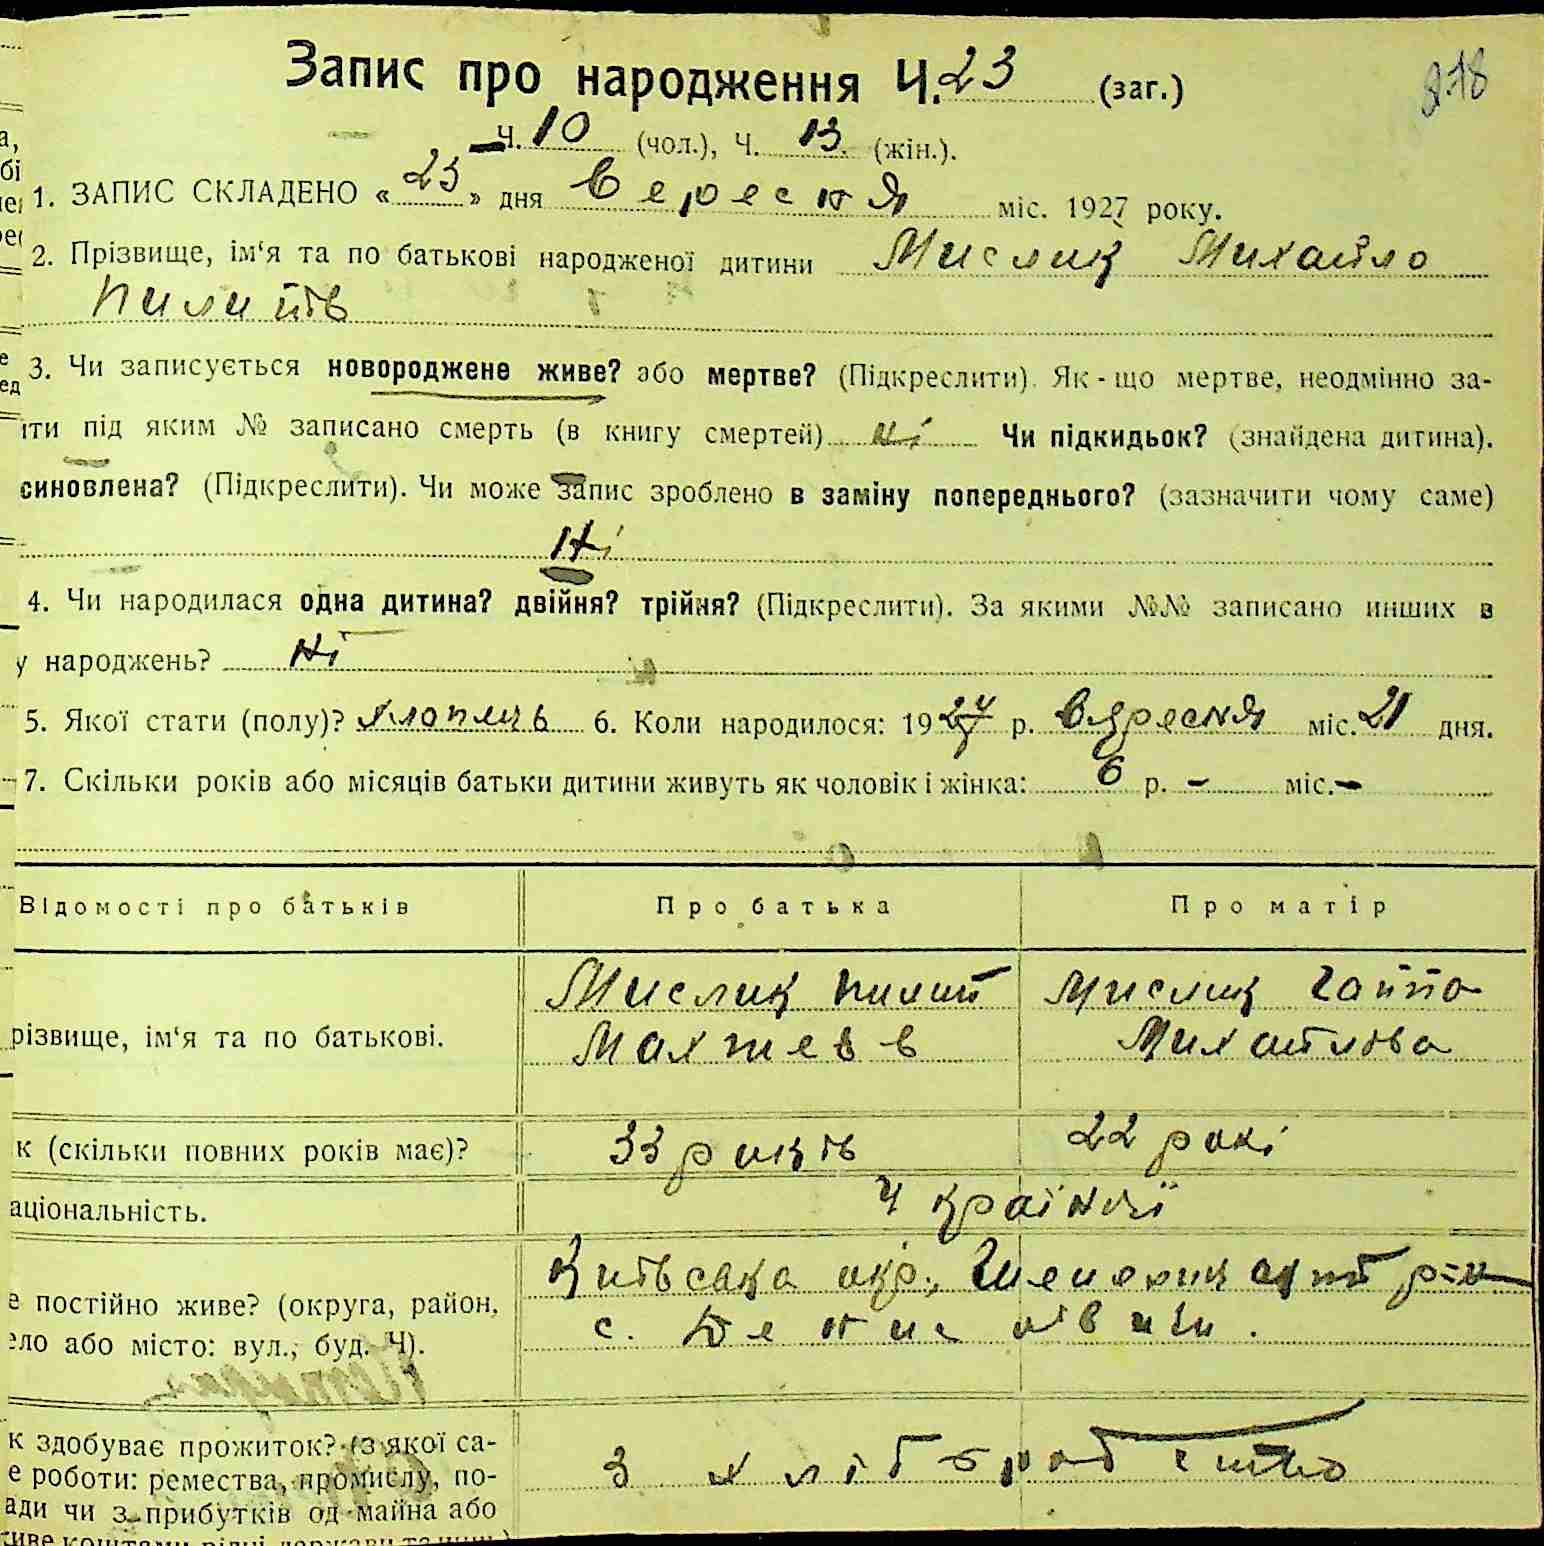 Запис про народження Ч. 23 (заг.)
Ч. 10 (чол.), Ч. 13. (жін.).
1. ЗАПИС СКЛАДЕНО « 23 » дня Вересня міс. 1927 року.
2. Прізвище, ім‘я та по батькові народженої дитини Мислик Михайло
Пилипів
3. Чи записується новороджене живе? або мертве? (Підкреслити). Як-що мертве, неодмінно за-
іти під яким № записано смерть (в книгу смертей) Ні Чи підкидьок? (знайдена дитина).
синовлена? (Підкреслити). Чи може запис зроблено в заміну попереднього? (зазначити чому саме)
Ні
4. Чи народилася одна дитина? двійня? трійня? (Підкреслити). За якими №№ записано инших в
у народжень? Ні
5. Якої стати (полу)? хлопець 6. Коли народилося: 19 р. Вересня міс. 21 дня.
7. Скільки років або місяців батьки дитини живуть як чоловік і жінка: 6 р. - міс. -
Відомості про батьків Про батька Про матір
Мислик Пилип Мислик Гаппа
різвище, ім‘я та по батькові. Михайлова
к (скільки повних років має)? 33 років 22 роки
аціональність. Українці
Київська окр.,
е постійно живе? (округа, район,
ело або місто: вул., буд. Ч).
к здобуває прожиток? (з якої са- З хліборобство
е роботи: ремества, промислу, по-
ади чи з прибутків од майна або